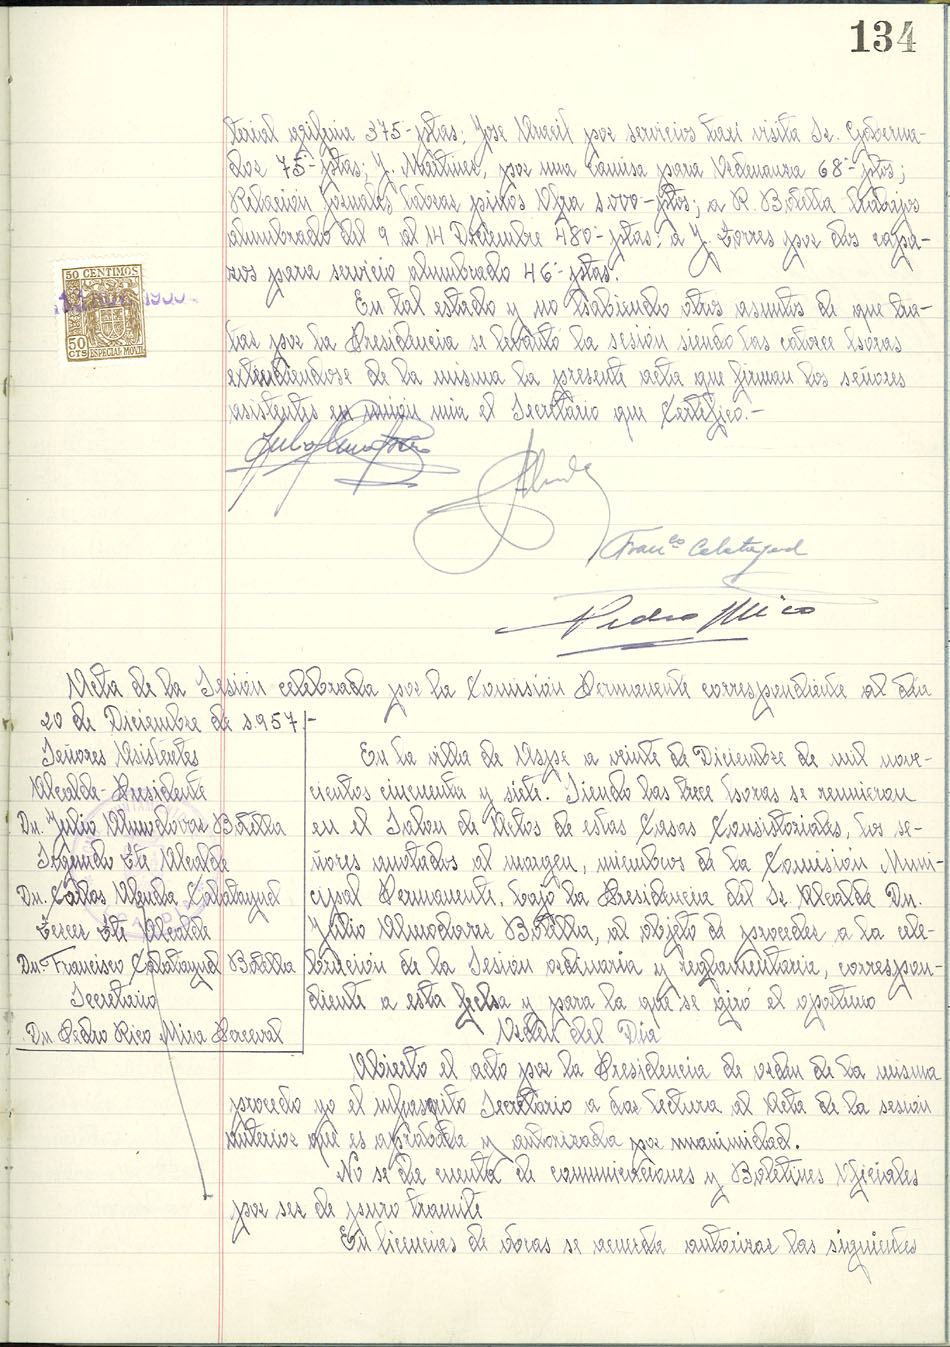 134
terial oficina 375'- ptas; Jose Miralles por servicios taxi visita Sr. Goberna-
dor 75'- ptas; J. Martinez, por una camisa para Ordenanza 68'- ptas;
Relación jornales labras pinos 1.000'- ptas; a R. Botella trabajos
alumbrado del 9 al 14 Diciembre 480'- ptas; a J. Torres por dos capa-
zos para servicio alumbrado 46'- ptas.
En tal estado y no habiendo otros asuntos de que tra-
tar por la Presidencia se levantó la sesión siendo las catorce horas
extendiendose de la misma la presente acta que firman los señores
asistentes en unión mia el Secretario que Certifico.-
50 CENTIMOS
50 CTS ESPECIAL MOVIL
Franco Calatayud
Pedro Mico
Acta de la Sesión celebrada por la Comisión Permanente correspondiente al dia
20 de Diciembre de 1.957.-
Señores Asistentes
Alcalde-Presidente
Dn. Julio Almodovar Botella
Segundo Tte Alcalde
Dn. Carlos Alenda Calatayud
Tercer Tte Alcalde
Dn. Francisco Calatayud Botella
Secretario
Dn Pedro Rico Mira Perceval
En la villa de Aspe a veinte de Diciembre de mil nove-
cientos cincuenta y siete. Siendo las trece horas se reunieron
en el Salon de Actos de estas Casas Consistoriales, los se-
ñores anotados al margen, miembros de la Comisión Muni-
cipal Permanente, bajo la Presidencia del Sr Alcalde Dn.
Julio Almodovar Botella, al objeto de proceder a la cele-
bración de la Sesión ordinaria y reglamentaria, correspon-
diente a esta fecha y para la que se giró el oportuno
Orden del Dia
Abierto el acto por la Presidencia de orden de la misma
procedo yo el infrascrito Secretario a dar lectura al Acta de la sesión
anterior que es aprobada y autorizada por unanimidad.
No se da cuenta de comunicaciones y Boletines Oficiales
por ser de puro tramite
En licencias de obras se acuerda autorizar las siguientes